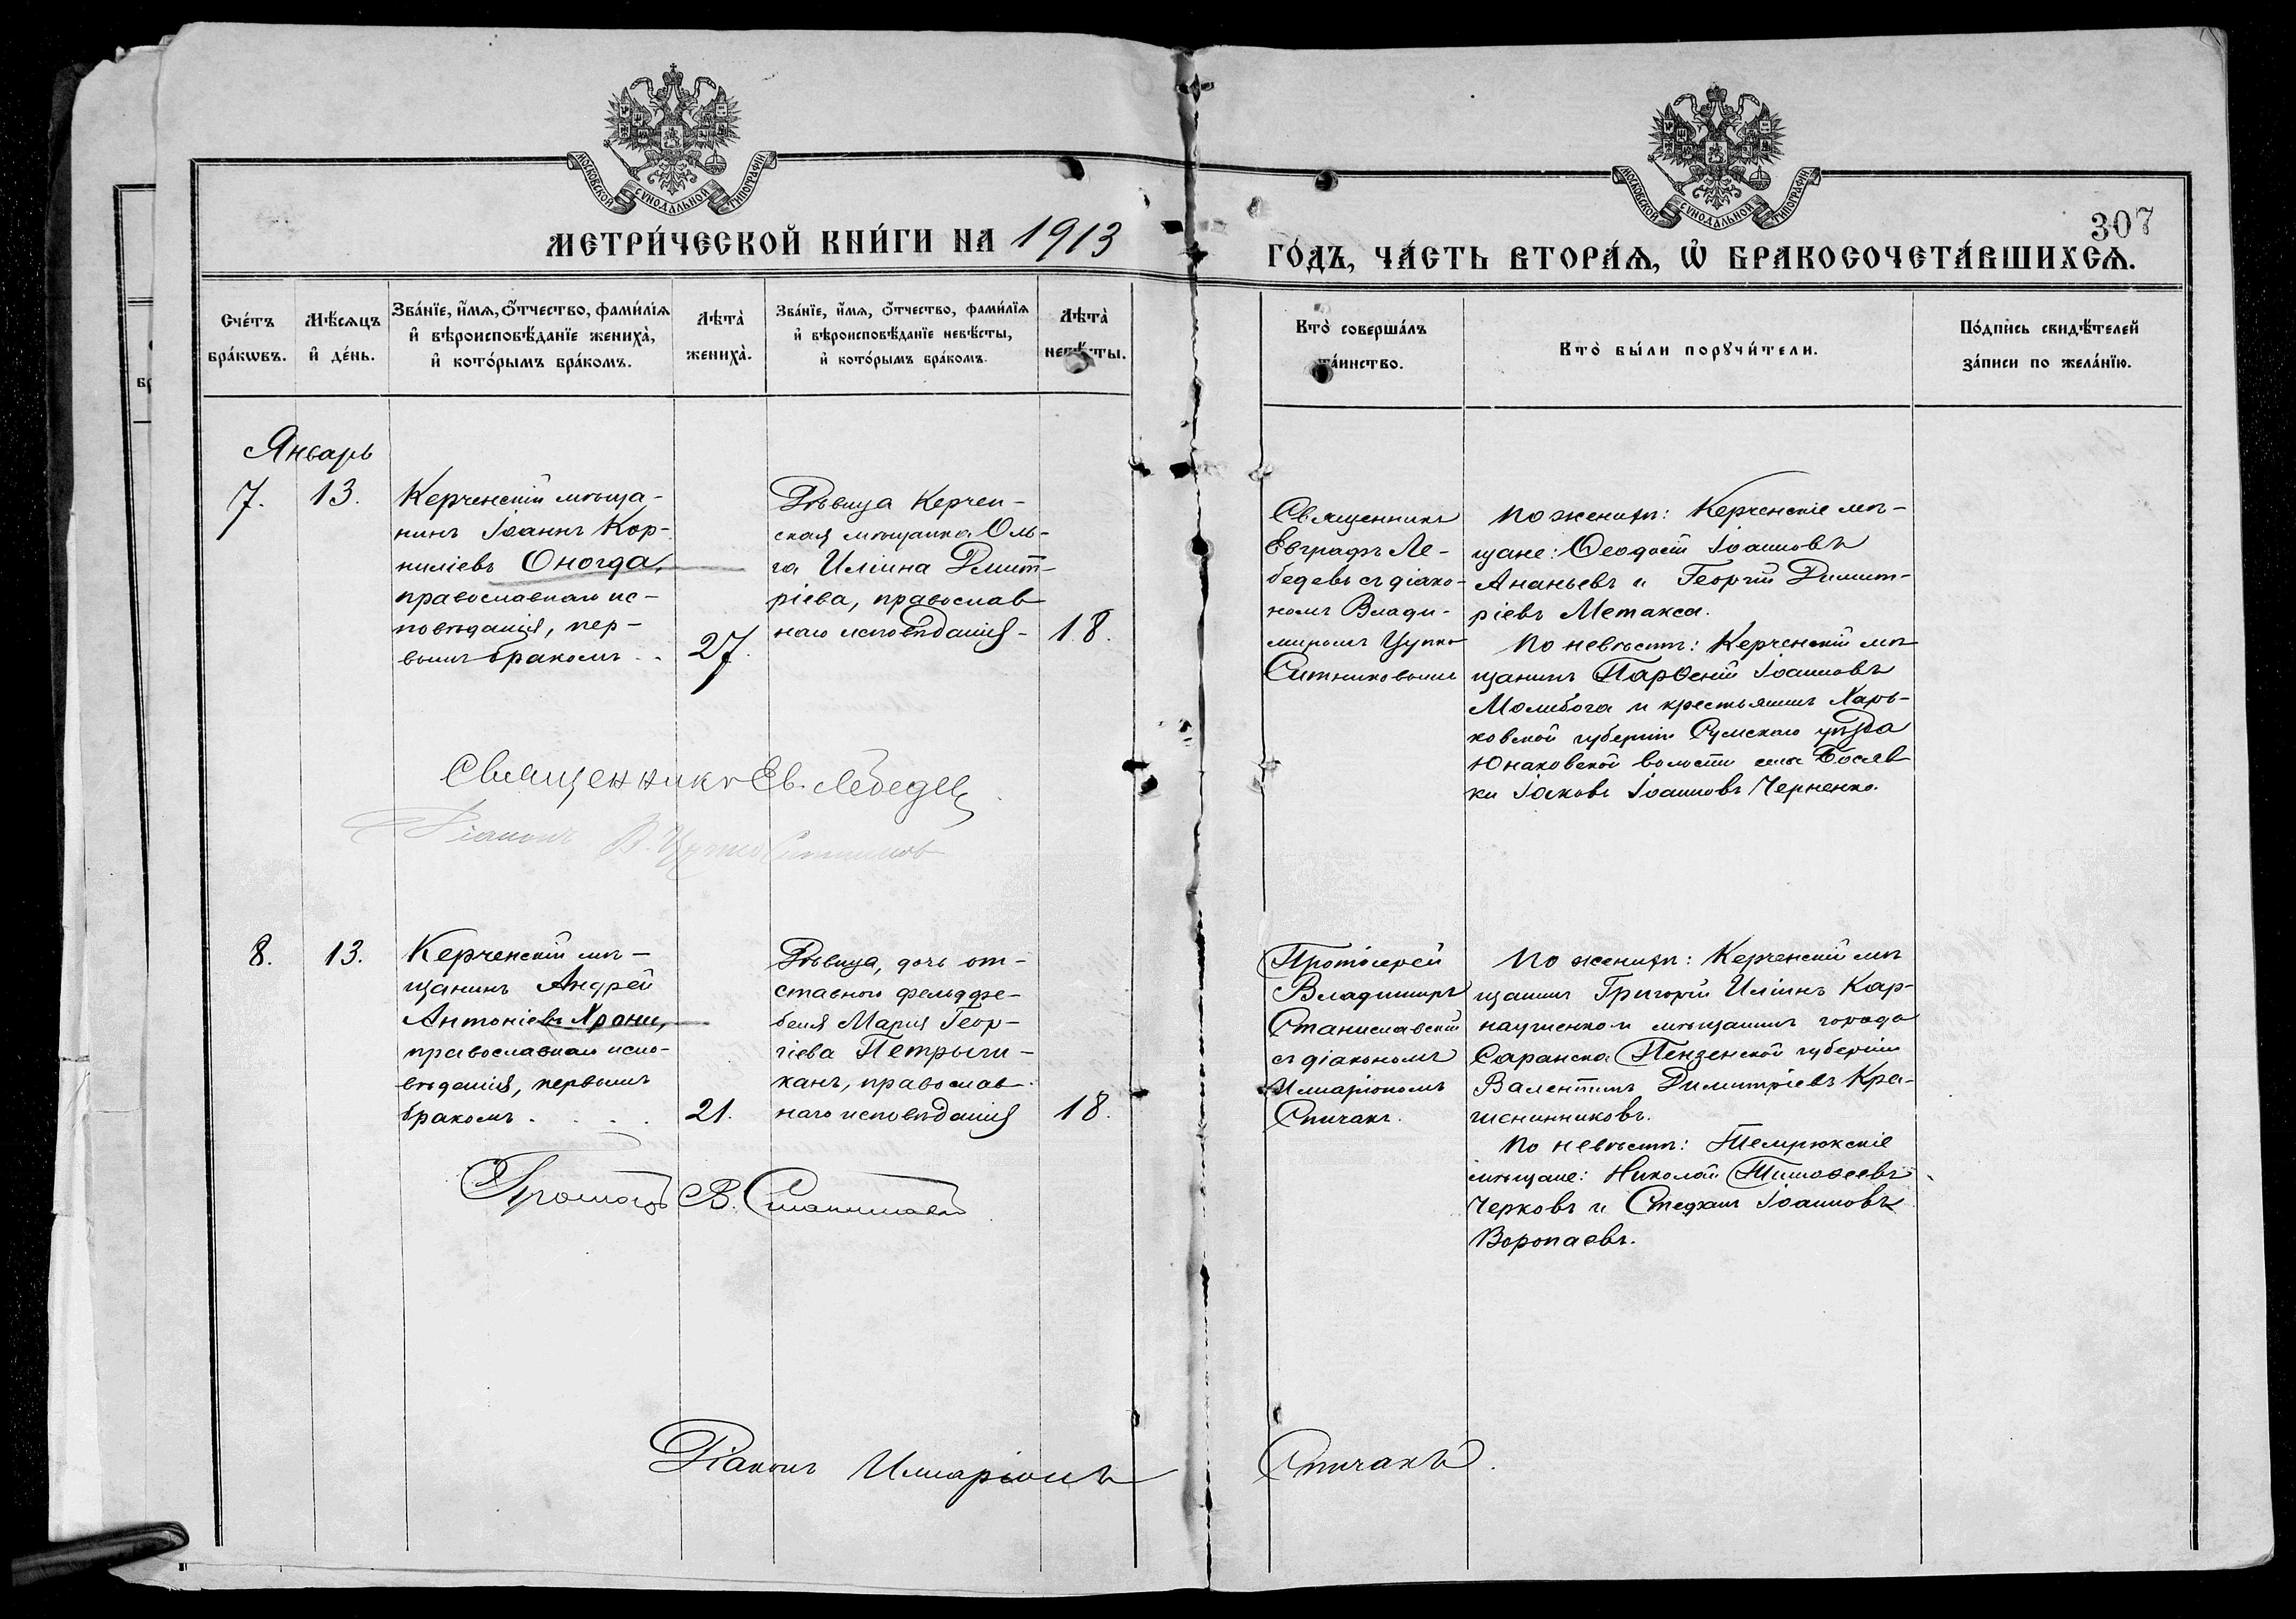 МОСКОВСКОЙ СУНОДАЛЬНОЙ ТИПОГРАФІИ
МОСКОВСКОЙ СУНОДАЛЬНОЙ ТИПОГРАФІИ
307
МЕТРИ́ЧЕСКОЙ КНИ́ГИ НА 1913
ГО́ДЪ, ЧА́СТЬ ВТОРА́Ѧ, Ѡ҆ БРАКОСОЧЕТА́ВШИХСѦ.
Сче́тъ
бра́кѡвъ.
Мѣ́сяцъ
и҆ де́нь.
Зва́нїе, и҆́мя, ѻ҆́тчество, фами́лїя
и҆ вѣроисповѣ́данїе жениха̀,
и҆ кото́рымъ бра́комъ.
Лѣта̀
жениха̀.
Зва́нїе, и҆́мя, ѻ҆́тчество, фами́лїя
и҆ вѣроисповѣ́данїе невѣ́сты,
и҆ кото́рымъ бра́комъ.
Лѣта̀
невѣ́сты.
Кто̀ соверша́лъ
та́инство.
Кто̀ бы́ли порꙋчи́тели.
По́дпись свидѣ́телей
за́писи по жела́нїю.
Январь
7.
13.
Керченскій мѣща-
нинъ Іоаннъ Кор-
ниліевъ Оногда,
православнаго ис-
повѣданія, пер-
вымъ бракомъ . .
27.
Дѣвица Керчен-
ская мѣщанка Оль-
га Иліина Дмит-
ріева, православ
наго исповѣданія -
18.
Священникъ
Евграфъ Ле-
бедевъ съ діако-
номъ Влади-
миромъ Цупко
Ситниковымъ
По женихѣ: Керченскіе мѣ-
щане: Ѳеодосій Іоанновъ
Ананьевъ и Георгій Димит-
ріевъ Метакса.
По невѣстѣ: Керченскій мѣ
щанинъ Парѳеній Іоанновъ
Молибога и крестьянинъ Харь-
ковской губерніи Сумскаго уѣзда
Юнаковской волости села Бояв
ки Іаковъ Іоанновъ Черненко.
Священникъ Ев. Лебедевъ
Діаконъ В. Цупко Ситников
8.
13.
Керченскій мѣ-
щанинъ Андрей
Антоніевъ Хрони,
православнаго испо-
вѣданія, первымъ
бракомъ . . . .
21.
Дѣвица, дочь от-
ставного фельдфе-
беля Марія Геор-
гіева Петрыги-
канъ, православ-
наго исповѣданія
18.
Протоіерей
Владимиръ
Станиславскій
съ діакономъ
Иларіономъ
Спичакъ.
По женихѣ: Керченскій мѣ
щанинъ Григорій Иліинъ Кар-
наушенко и мѣщанинъ города
Саранска Пензенской губерніи
Валентинъ Димитріевъ Кра-
шенинниковъ.
По невѣстѣ: Темрюкскіе
мѣщане: Николай Тимоѳеевъ
Черковъ и Стефанъ Іоанновъ
Воропаевъ.
В. Станиславскій
Діаконъ Иларіонъ
Спичакъ.